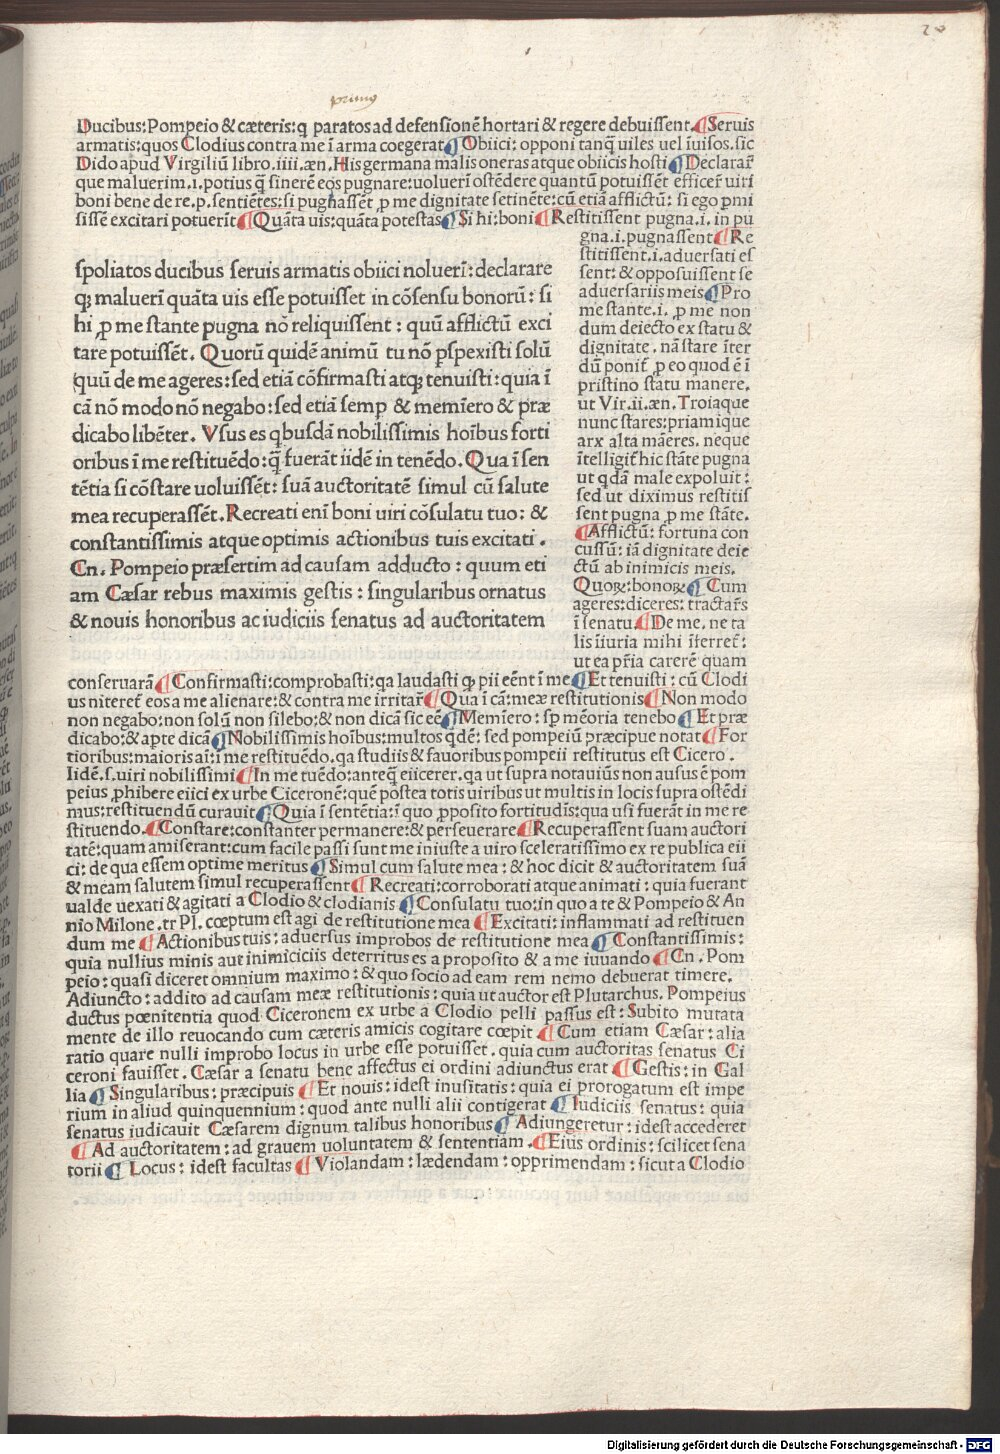 20
primus
Ducibus: Pompeio & cæteris: q paratos ad defensionē hortari & regere debuissent. ¶ Seruis
armatis: quos Clodius contra me ī arma coegerat ¶ Obiici: opponi tanq̄ uiles uel īuisos. sic
Dido apud Virgiliū libro .iiii. æn. His germana malis oneras atque obiicis hosti ¶ Declarar̄
que maluerim .i. potius q̄ sinerē eos pugnare: uoluerī ostēdere quantū potuissēt efficer̄ uiri
boni bene de re .p. sentiētes: si pugnassēt ꝓ me dignitate .s. etinēte: cū etiā afflictū: si ego ꝓmi
sissē excitari potuerīt ¶ Quāta uis: quāta potestas ¶ Si hi: boni ¶ Restitissent pugna .i. in pu
gna .i. pugnassent ¶ Re
stitissent .i. aduersati es
sent: & opposuissent se
aduersariis meis ¶ Pro
me stante .i. ꝓ me non
dum deiecto ex statu &
dignitate. nā stare īter
dū ponit̄ ꝓ eo quod ē ī
pristino statu manere.
ut Vir. ii. æn. Troiaque
nunc stares: priamique
arx alta māeres. neque
ītelligit̄ hic stāte pugna
ut qdā male expoluit:
sed ut diximus restitis
sent pugna ꝓ me stāte.
¶ Afflictū: fortuna con
cussū: iā dignitate deie
ctū ab inimicis meis.
Quoꝝ: bonoꝝ ¶ Cum
ageres: diceres: tractar̄s
ī senatu ¶ De me. ne ta
lis īiuria mihi īferret̄:
ut ea pr̄ia carerē quam
spoliatos ducibus seruis armatis obiici noluerī: declarare
qꝫ maluerī quāta uis esse potuisset in cōsensu bonorū: si
hi ꝓ me stante pugna nō reliquissent: quū afflictū exci
tare potuissēt. Quorū quidē animū tu nō ꝑspexisti solū
quū de me ageres: sed etiā cōfirmasti atqꝫ tenuisti: quia ī
cā nō modo nō negabo: sed etiā semꝑ & memīero & præ
dicabo libēter. Vsus es qbusdā nobilissimis hoībus forti
oribus ī me restituēdo: q̄ fuerāt iidē in tenēdo. Qua ī sen
tētia si cōstare uoluissēt: suā auctoritatē simul cū salute
mea recuperassēt. Recreati enī boni uiri cōsulatu tuo: &
constantissimis atque optimis actionibus tuis excitati.
Cn. Pompeio præsertim ad causam adducto: quum eti
am Cæsar rebus maximis gestis: singularibus ornatus
& nouis honoribus ac iudiciis senatus ad auctoritatem
conseruarā ¶ Confirmasti: comprobasti: qa laudasti qꝫ pii eēnt ī me ¶ Et tenuisti: cū Clodi
us niteret̄ eos a me alienare: & contra me irritar̄ ¶ Qua ī cā: meæ restitutionis ¶ Non modo
non negabo: non solū non silebo: & non dicā sic eē ¶ Memīero: sꝑ mēoria tenebo ¶ Et præ
dicabo: & aꝑte dicā ¶ Nobilissimis hoībus: multos qdē: sed pompeiū præcipue notat ¶ For
tioribus: maioris aī: ī me restituēdo. qa studiis & fauoribus pompeii restitutus est Cicero.
Iidē .s. uiri nobilissimi ¶ In me tuēdo: anteq̄ eiicerer. qa ut supra notauius non ausus ē pom
peius ꝓhibere eiici ex urbe Ciceronē: quē postea totis uiribus ut multis in locis supra ostēdi
mus: restituendū curauit ¶ Quia ī sentētia: ī quo ꝓposito fortitudīs: qua usi fuerāt in me re
stituendo. ¶ Constare: constanter permanere: & perseuerare ¶ Recuperassent suam auctori
tatē: quam amiserant: cum facile passi sunt me iniuste a uiro sceleratissimo ex re publica eii
ci: de qua essem optime meritus ¶ Simul cum salute mea: & hoc dicit & auctoritatem suā
& meam salutem simul recuperassent ¶ Recreati: corroborati atque animati: quia fuerant
ualde uexati & agitati a Clodio & clodianis ¶ Consulatu tuo: in quo a te & Pompeio & An
nio Milone .tr Pl. cœptum est agi de restitutione mea ¶ Excitati: inflammati ad restituen
dum me ¶ Actionibus tuis: aduersus improbos de restitutione mea ¶ Constantissimis:
quia nullius minis aut inimiciciis deterritus es a proposito & a me iuuando ¶ Cn. Pom
peio: quasi diceret omnium maximo: & quo socio ad eam rem nemo debuerat timere.
Adiuncto: addito ad causam meæ restitutionis: quia ut auctor est Plutarchus. Pompeius
ductus pœnitentia quod Ciceronem ex urbe a Clodio pelli passus est: Subito mutata
mente de illo reuocando cum cæteris amicis cogitare cœpit ¶ Cum etiam Cæsar: alia
ratio quare nulli improbo locus in urbe esse potuisset. quia cum auctoritas senatus Ci
ceroni fauisset. Cæsar a senatu bene affectus ei ordini adiunctus erat ¶ Gestis: in Gal
lia ¶ Singularibus: præcipuis ¶ Et nouis: idest inusitatis: quia ei prorogatum est impe
rium in aliud quinquennium: quod ante nulli alii contigerat ¶ Iudiciis senatus: quia
senatus iudicauit Cæsarem dignum talibus honoribus ¶ Adiungeretur: idest accederet
¶ Ad auctoritatem: ad grauem uoluntatem & sententiam. ¶ Eius ordinis: scilicet sena
torii ¶ Locus: idest facultas ¶ Violandam: lædendam: opprimendam: sicut a Clodio
Digitalisierung gefördert durch die Deutsche Forschungsgemeinschaft - DFG